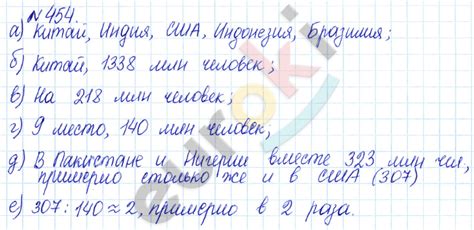 № 454.
а) Китай, Индия, США, Индонезия, Бразилия;
б) Китай, 1338 млн человек;
в) На 218 млн человек;
г) 9 место, 140 млн человек;
д) В Пакистане и Нигерии вместе 323 млн чел,
примерно столько же и в США (307)
е) 307 : 140 ≈ 2, примерно в 2 раза.
euroki